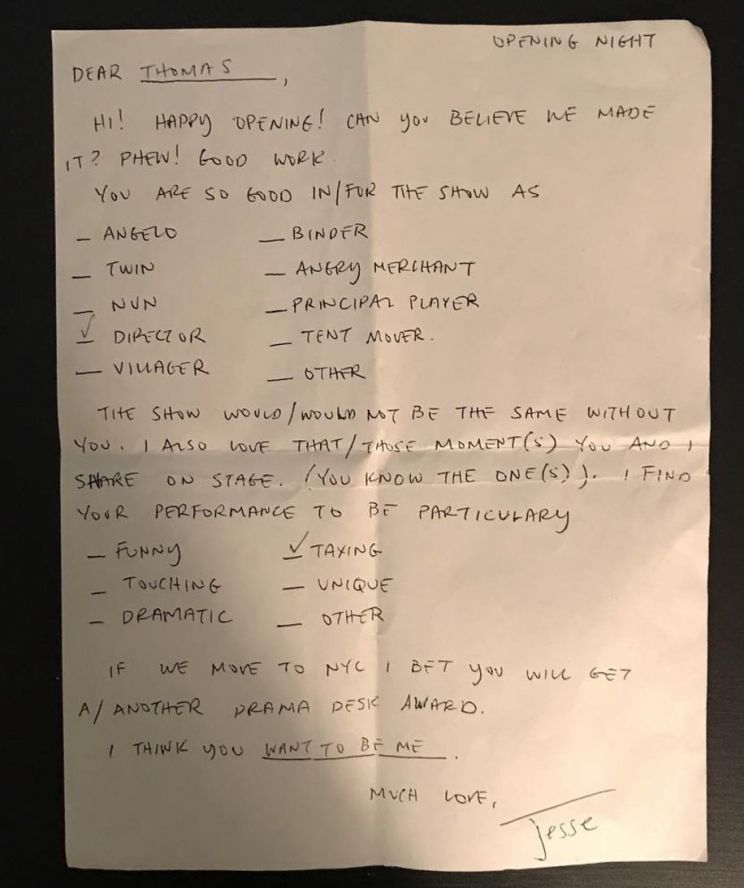 OPENING NIGHT
DEAR THOMAS,
HI! HAPPY OPENING! CAN YOU BELIEVE WE MADE
IT? PHEW! GOOD WORK.
YOU ARE SO GOOD IN/FOR THE SHOW AS
_ ANGELO _ BINDER
_ TWIN _ ANGRY MERCHANT
_ NUN _ PRINCIPAL PLAYER
✓ DIRECTOR _ TENT MOVER.
_ VILLAGER _ OTHER
THE SHOW WOULD/WOULD NOT BE THE SAME WITHOUT
YOU. I ALSO LOVE THAT/THOSE MOMENT(S) YOU AND I
SHARE ON STAGE. (YOU KNOW THE ONE(S)). I FIND
YOUR PERFORMANCE TO BE PARTICULARY
_ FUNNY ✓ TAXING
_ TOUCHING _ UNIQUE
_ DRAMATIC _ OTHER
IF WE MOVE TO NYC I BET YOU WILL GET
A/ANOTHER DRAMA DESK AWARD.
I THINK YOU WANT TO BE ME.
MUCH LOVE,
Jesse